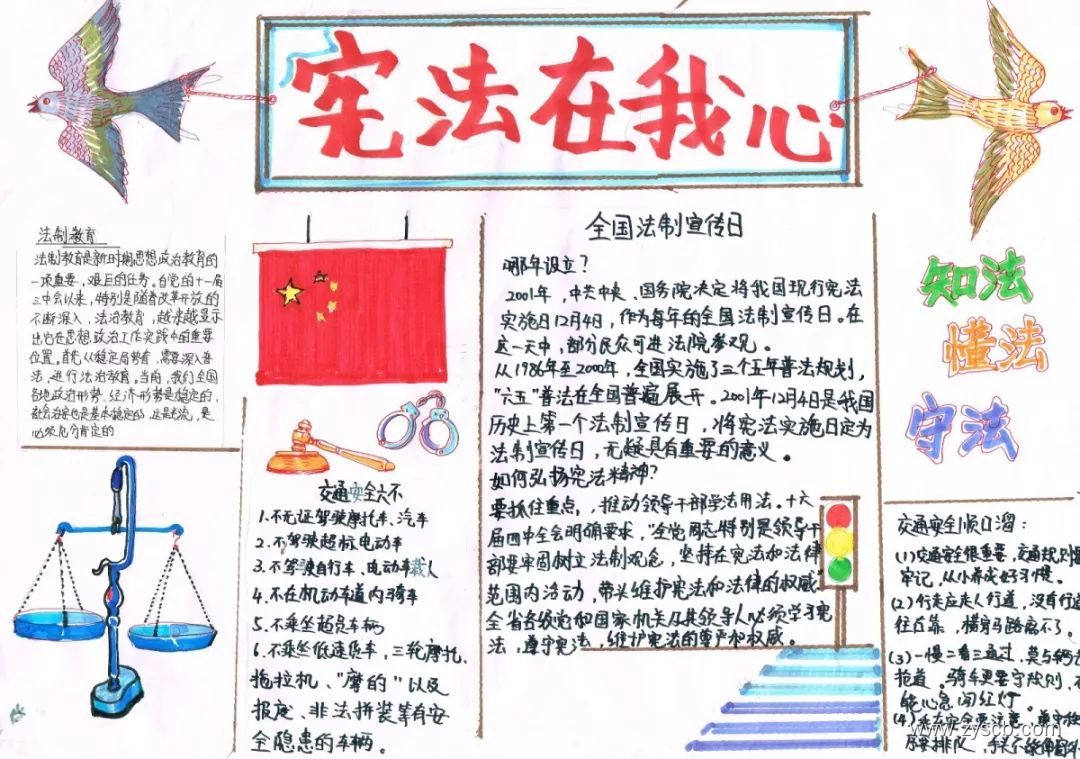 宪法在我心
法制教育
法制教育是新时期思想政治教育的
一项重要、艰巨的任务。自党的十一届
三中会以来，特别是随着改革开放的
不断深入，法治教育，越来越显示
出它在思想政治工作实践中的重要
位置。首先从稳定局势看，需要深入普
法，进行法治教育。当前，我们全国
各地政治形势、经济形势是稳定的，
社会治安也是基本稳定的，这是主流，是
必须充分肯定的
交通安全六不
1.不无证驾驶摩托车、汽车
2.不驾驶超标电动车
3.不驾驶自行车、电动车载人
4.不在机动车道内骑车
5.不乘坐超员车辆
6.不乘坐低速货车，三轮摩托、
拖拉机、"摩的"以及
报废、非法拼装等有安
全隐患的车辆。
全国法制宣传日
哪年设立？
2001年，中共中央、国务院决定将我国现行宪法
实施日12月4日，作为每年的全国法制宣传日。在
这一天中，部分民众可进法院参观。
从1986年至2000年，全国实施了三个五年普法规划，
"六五"普法在全国普遍展开。2001年12月4日是我国
历史上第一个法制宣传日，将宪法实施日定为
法制宣传日，无疑具有重要的意义。
如何弘扬宪法精神？
要抓住重点，推动领导干部学法用法。十六
届四中全会明确要求，"全党同志特别是领导干
部要牢固树立法制观念，坚持在宪法和法律
范围内活动，带头维护宪法和法律的权威，
全省各级党和国家机关及其领导人必须学习宪
法，遵守宪法，维护宪法的尊严和权威。
知法
懂法
守法
交通安全顺口溜：
(1)交通安全很重要，交通规则
牢记，从小养成好习惯。
(2)行走应走人行道，没有行道
往右靠，横穿马路离不了。
(3)一慢二看三通过，莫与车辆
抢道。骑车更要守规则，不
能心急闯红灯。
(4)乘车安全要注意，遵守秩
序要排队，手头不能伸窗外
www.zyscb.com